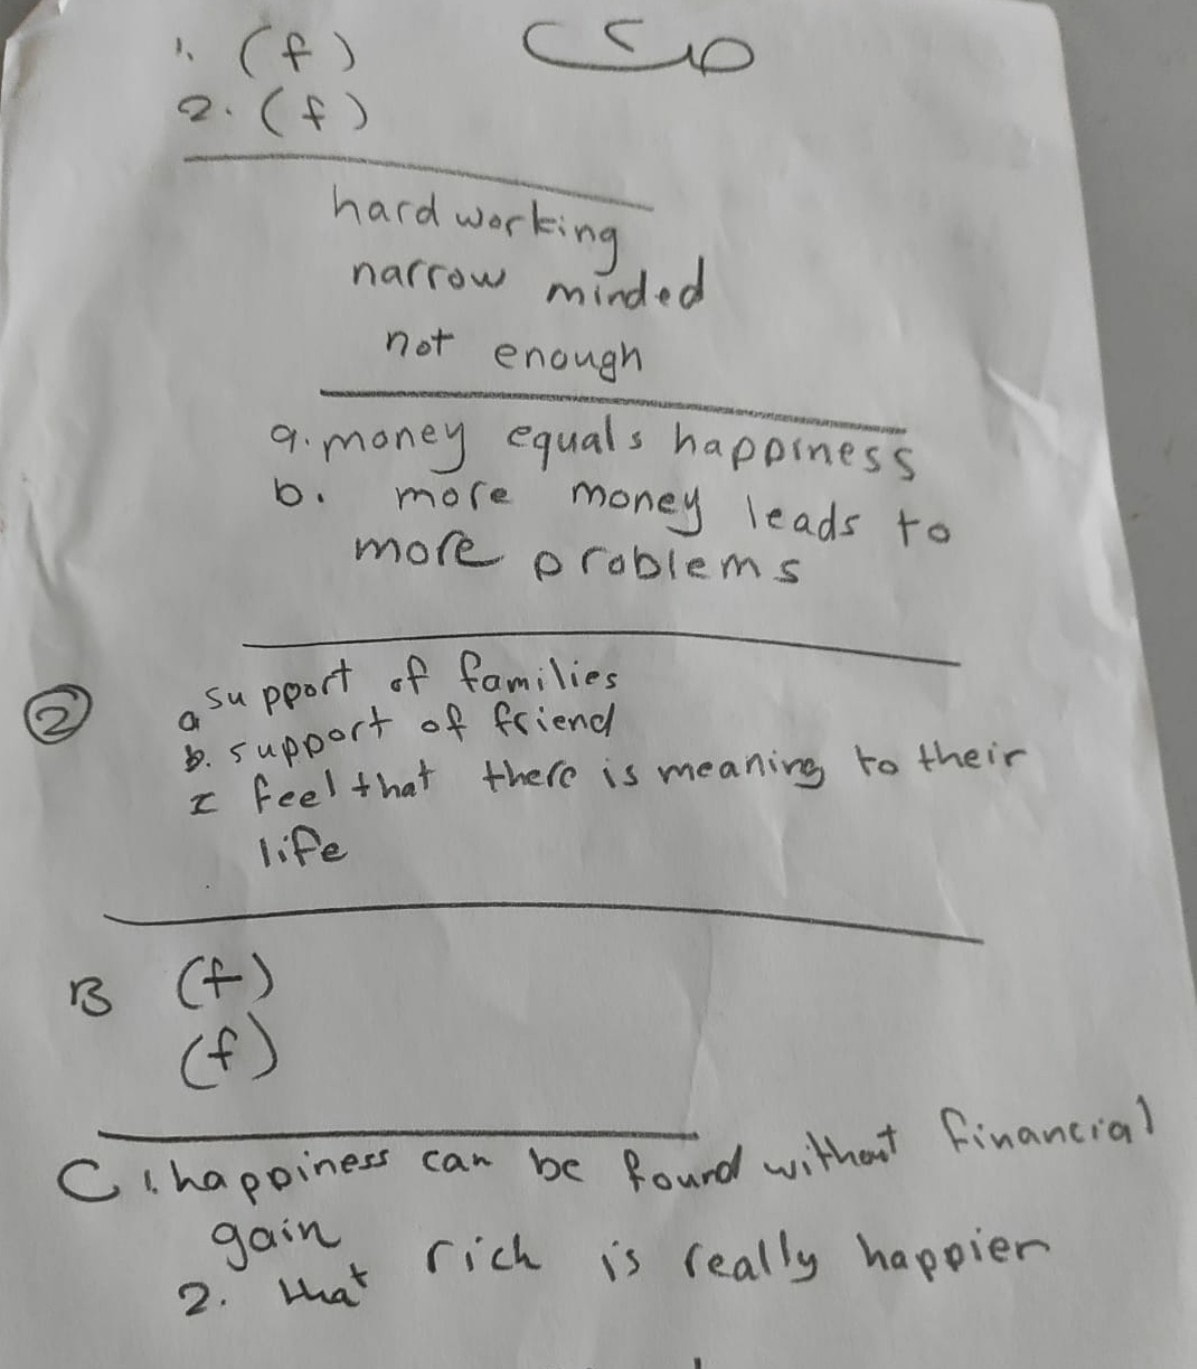 1. (f)
2. (f)
hard working
narrow minded
not enough
a. money equals happiness
b. more money leads to
more problems
2
a support of families
b. support of friend
I feel that there is meaning to their
life
B (f)
(f)
C 1. happiness can be found without financial
gain
2. that rich is really happier